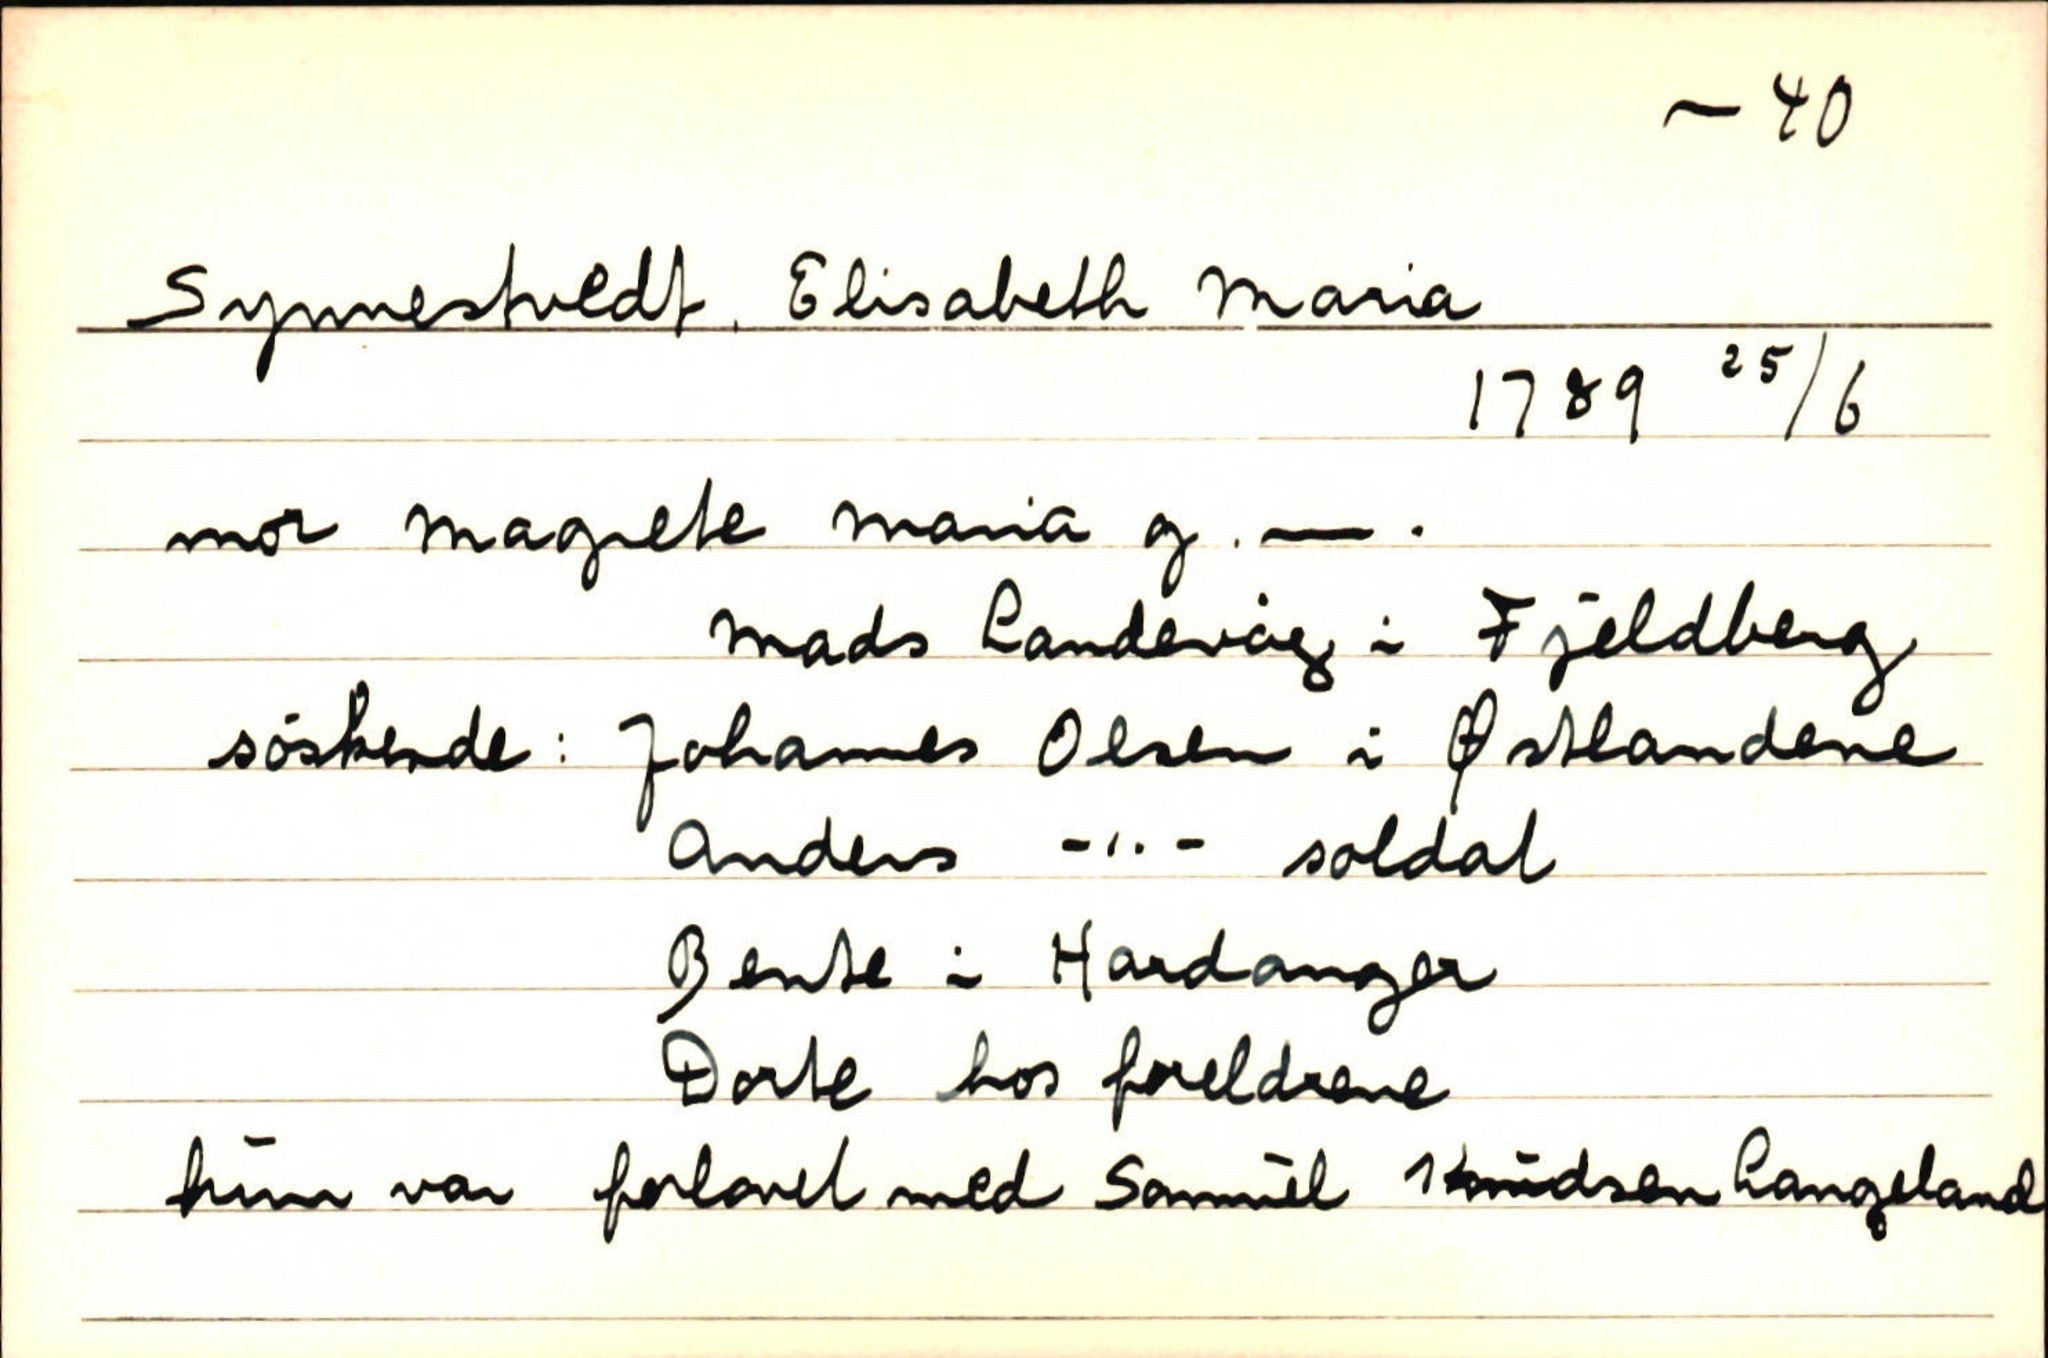 ~ 40
Synnestvedt, Elisabeth Maria
1789 25/6
mor Magrete Maria g. — .
Mads Landevåg i Fjeldberg
söskende: Johannes Olsen i Østlandene
Anders -"- soldat
Bente i Hardanger
Dorte hos foreldrene
hun var forlovet med Samuel Knudsen Langeland